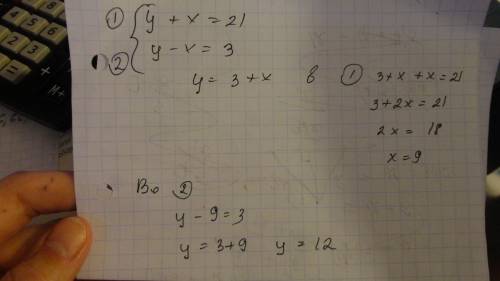 ① { y + x = 21
② { y - x = 3
y = 3 + x в ① 3 + x + x = 21
3 + 2x = 21
2x = 18
x = 9
Во ②
y - 9 = 3
y = 3 + 9 y = 12